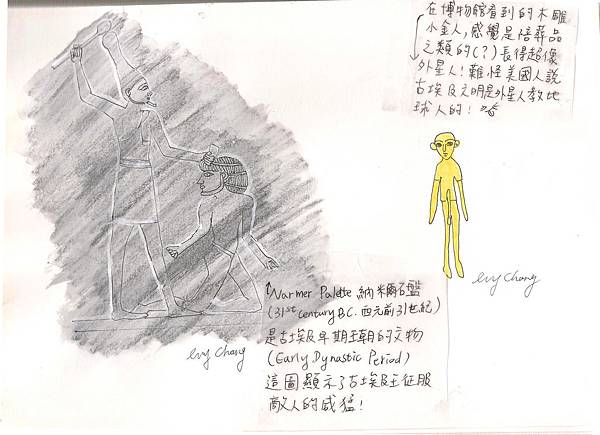 在博物館看到的木雕
小金人,感覺是陪葬品
之類的(?)長得超像
外星人!難怪美國人說
古埃及文明是外星人教地
球人的!
Ivy Chang
↑Narmer Palette 納米爾石盤
(31st century B.C. 西元前31世紀)
是古埃及早期王朝的文物
(Early Dynastic Period)
這圖顯示了古埃及王征服
敵人的威猛!
Ivy Chang